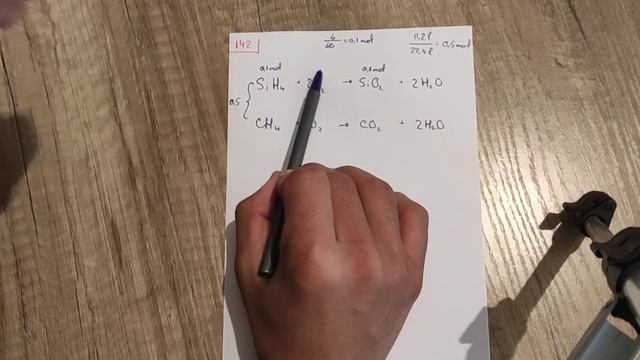 142 6/60 = 0,1 mol 11,2 l/22,4 l = 0,5 mol
0,1 mol 0,1 mol
SiH₄ + 2 ₂ → SiO₂ + 2H₂O
0,5
CH₄ O₂ → CO₂ + 2H₂O